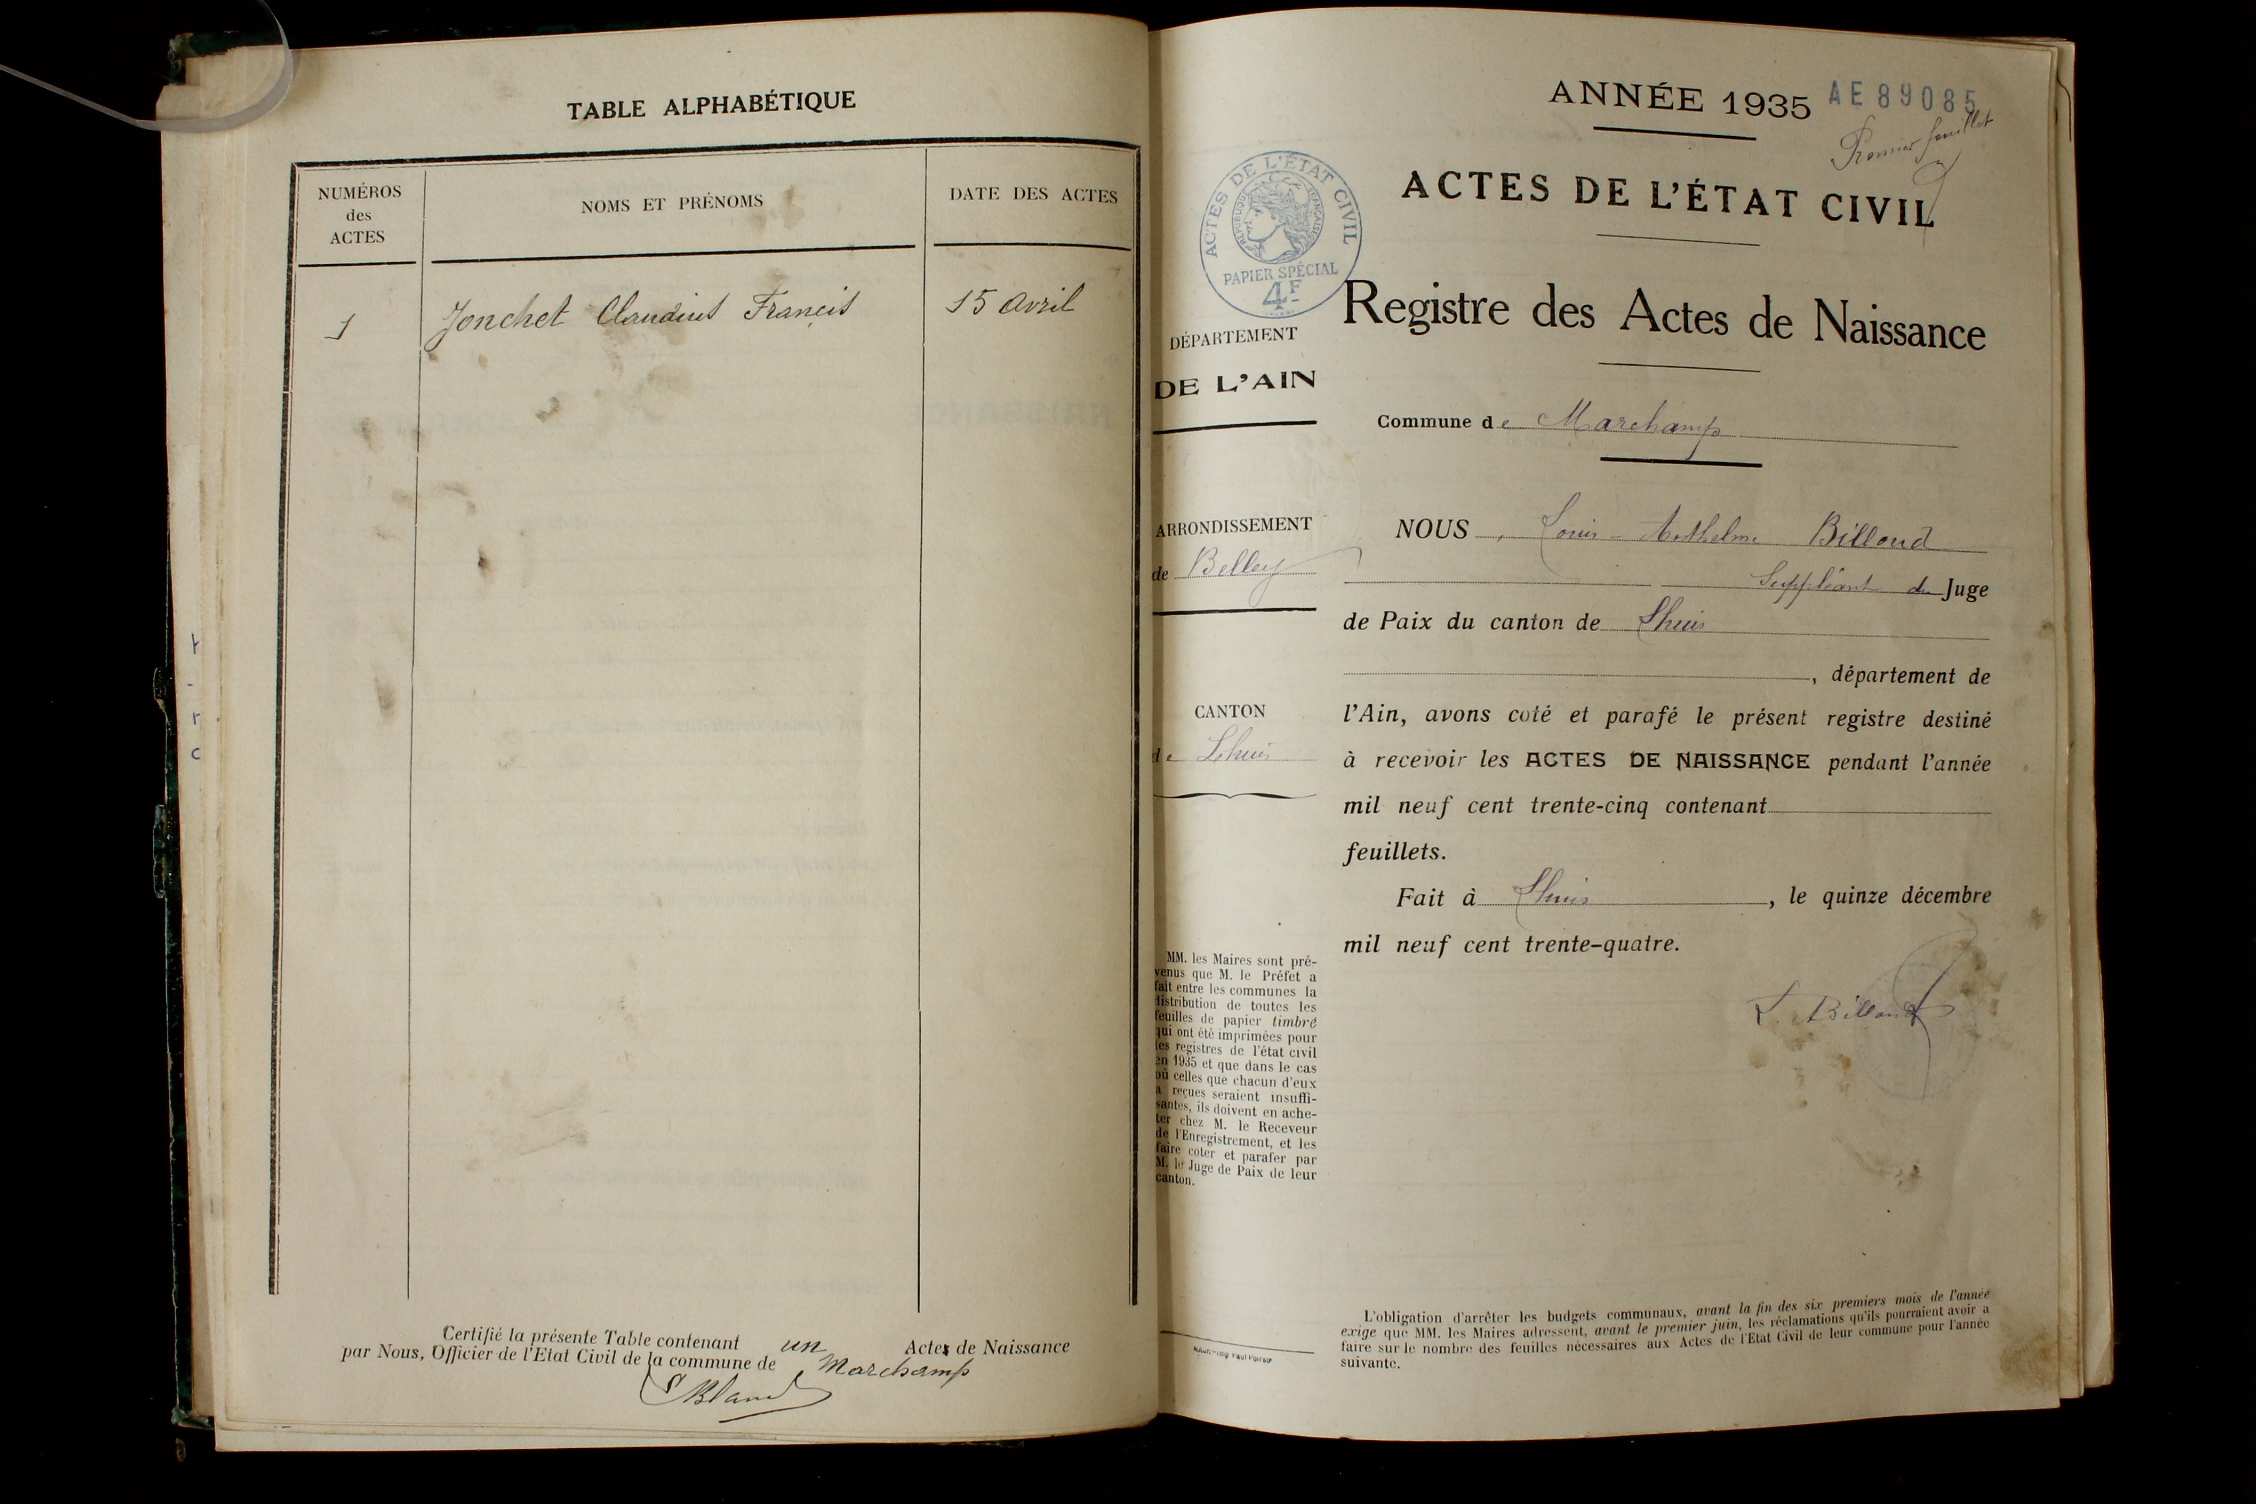 TABLE ALPHABÉTIQUE
NUMÉROS
des
ACTES
NOMS ET PRÉNOMS
DATE DES ACTES
1
Jonchet Claudius Francis
15 Avril
Certifié la présente Table contenant un Actes de Naissance
par Nous, Officier de l'Etat Civil de la commune de Marchamp
ANNÉE 1935
AE89085
Premier feuillet
ACTES DE L'ÉTAT CIVIL
RÉPUBLIQUE FRANÇAISE
PAPIER SPÉCIAL
4F
ACTES DE L'ÉTAT CIVIL
Registre des Actes de Naissance
DÉPARTEMENT
DE L'AIN
ARRONDISSEMENT
de Belley
CANTON
de Lhuis
MM. les Maires sont pré-
venus que M. le Préfet a
fait entre les communes la
distribution de toutes les
feuilles de papier timbré
qui ont été imprimées pour
les registres de l'état civil
en 1935 et que dans le cas
où celles que chacun d'eux
a reçues seraient insuffi-
santes, ils doivent en ache-
ter chez M. le Receveur
de l'Enregistrement, et les
faire coter et parafer par
M. le Juge de Paix de leur
canton.
Commune de Marchamp
NOUS, Louis Anthelme Billoud
Suppléant du Juge
de Paix du canton de Lhuis
, département de
l'Ain, avons coté et parafé le présent registre destiné
à recevoir les ACTES DE NAISSANCE pendant l'année
mil neuf cent trente-cinq contenant
feuillets.
Fait à Lhuis, le quinze décembre
mil neuf cent trente-quatre.
L. Billoud
L'obligation d'arrêter les budgets communaux, avant la fin des six premiers mois de l'année
exige que MM. les Maires adressent, avant le premier juin, les réclamations qu'ils pourraient avoir a
faire sur le nombre des feuilles nécessaires aux Actes de l'Etat Civil de leur commune pour l'année
suivante.